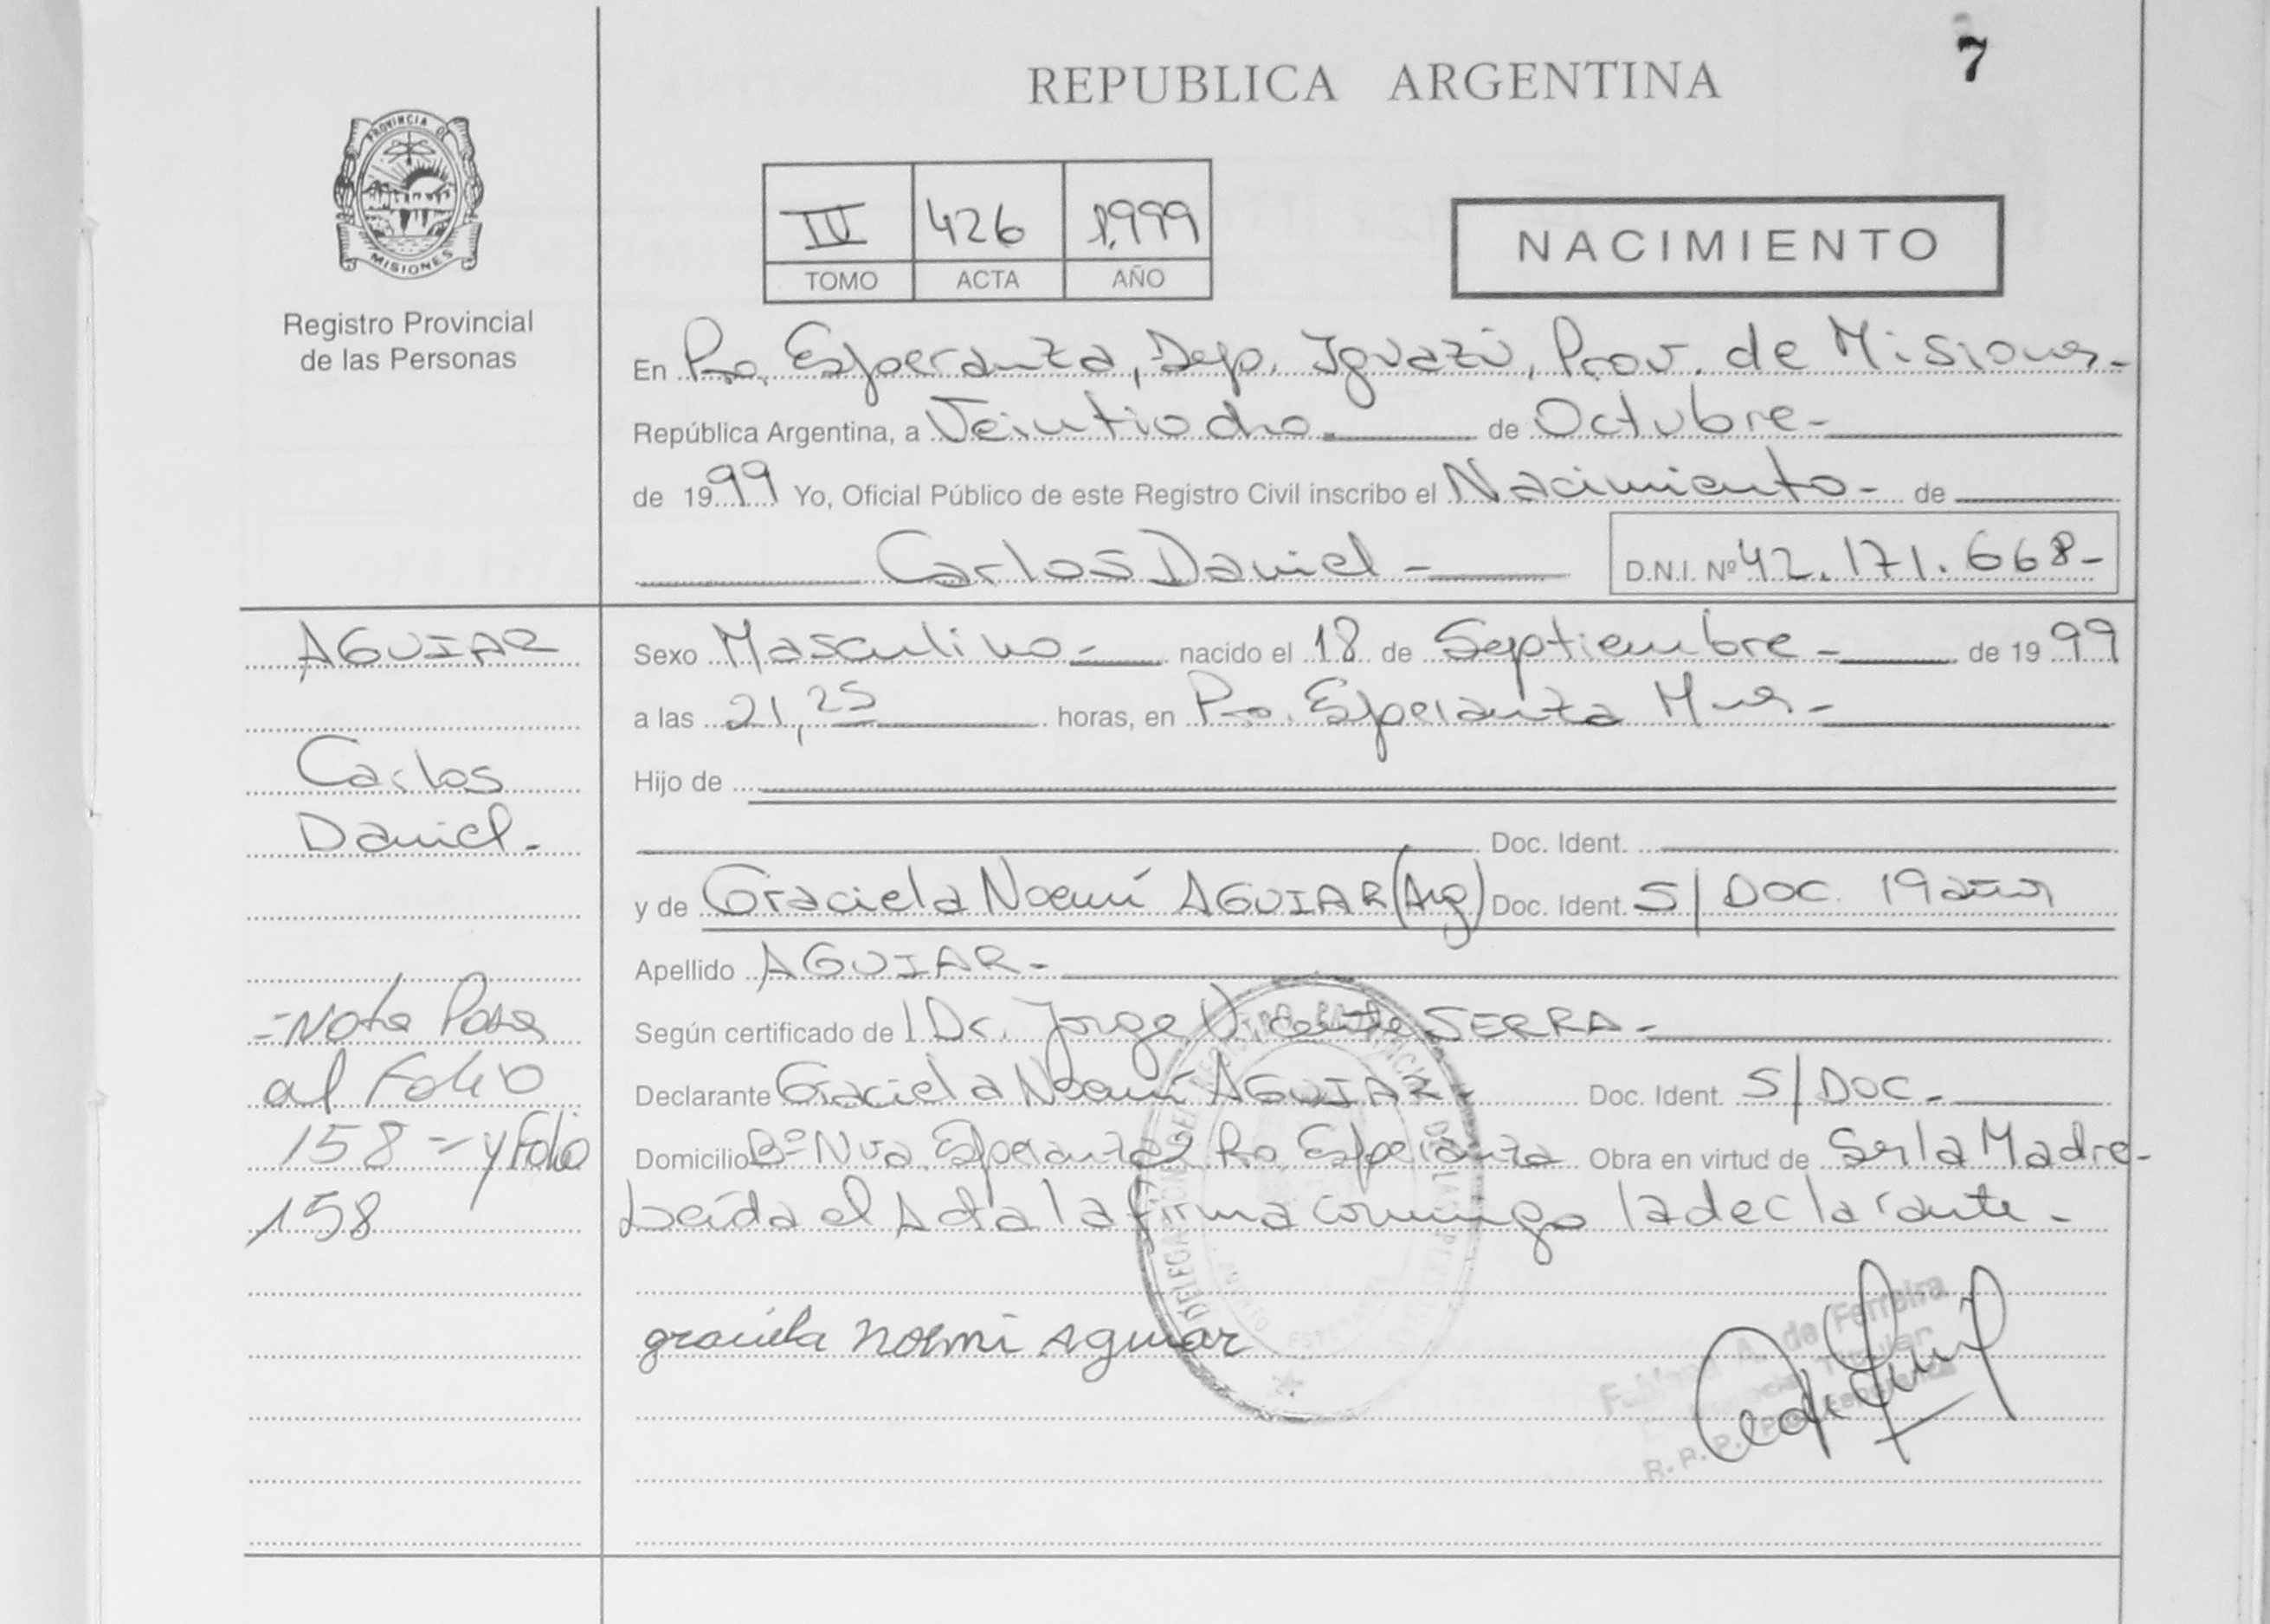 7
REPUBLICA ARGENTINA
PROVINCIA DE
MISIONES
Registro Provincial
de las Personas
IV 426 1.999
TOMO ACTA AÑO
NACIMIENTO
En Pto. Esperanza, Dep. Iguazú, Prov. de Misiones-
República Argentina, a Veintiocho- de Octubre-
de 1999 Yo, Oficial Público de este Registro Civil inscribo el Nacimiento- de
Carlos Daniel-
D.N.I. Nº 42.171.668-
AGUIAR
Carlos
Daniel-
=Nota Pasa
al Folio
158 = y Folio
158
Sexo Masculino- nacido el 18 de Septiembre- de 1999
a las 21,25 horas, en Pto. Esperanza Mnes-
Hijo de
Doc. Ident.
y de Graciela Noemí AGUIAR (Arg) Doc. Ident. S/DOC. 19 años
Apellido AGUIAR-
Según certificado de l Dr. Jorge Vicente SERRA-
Declarante Graciela Noemí AGUIAR- Doc. Ident. S/DOC-
Domicilio Bº Nva. Esperanza Pto. Esperanza Obra en virtud de Ser la Madre-
Leída el Acta la firma conmigo la declarante-
graciela noemi Aguiar
A. de Ferreira
Titular